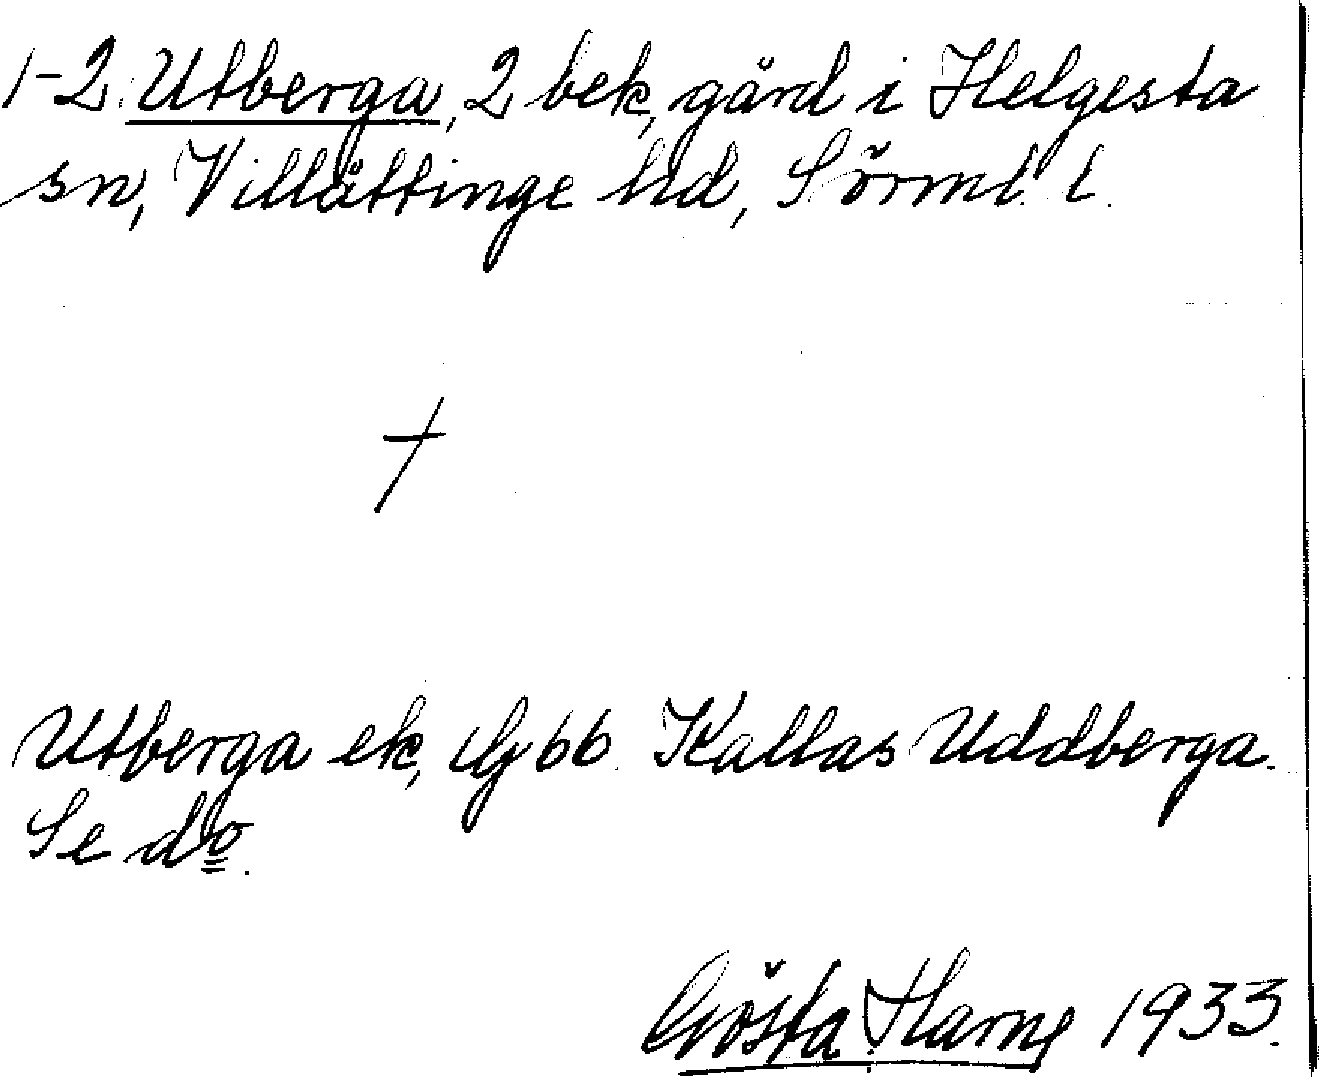 1-2. Utberga, 2 bek, gård i Helgesta
sn, Villåttinge hd, Sörml. l.
†
Utberga ek, 66. Kallas Uddberga.
Se do.
Gösta Harne 1933.